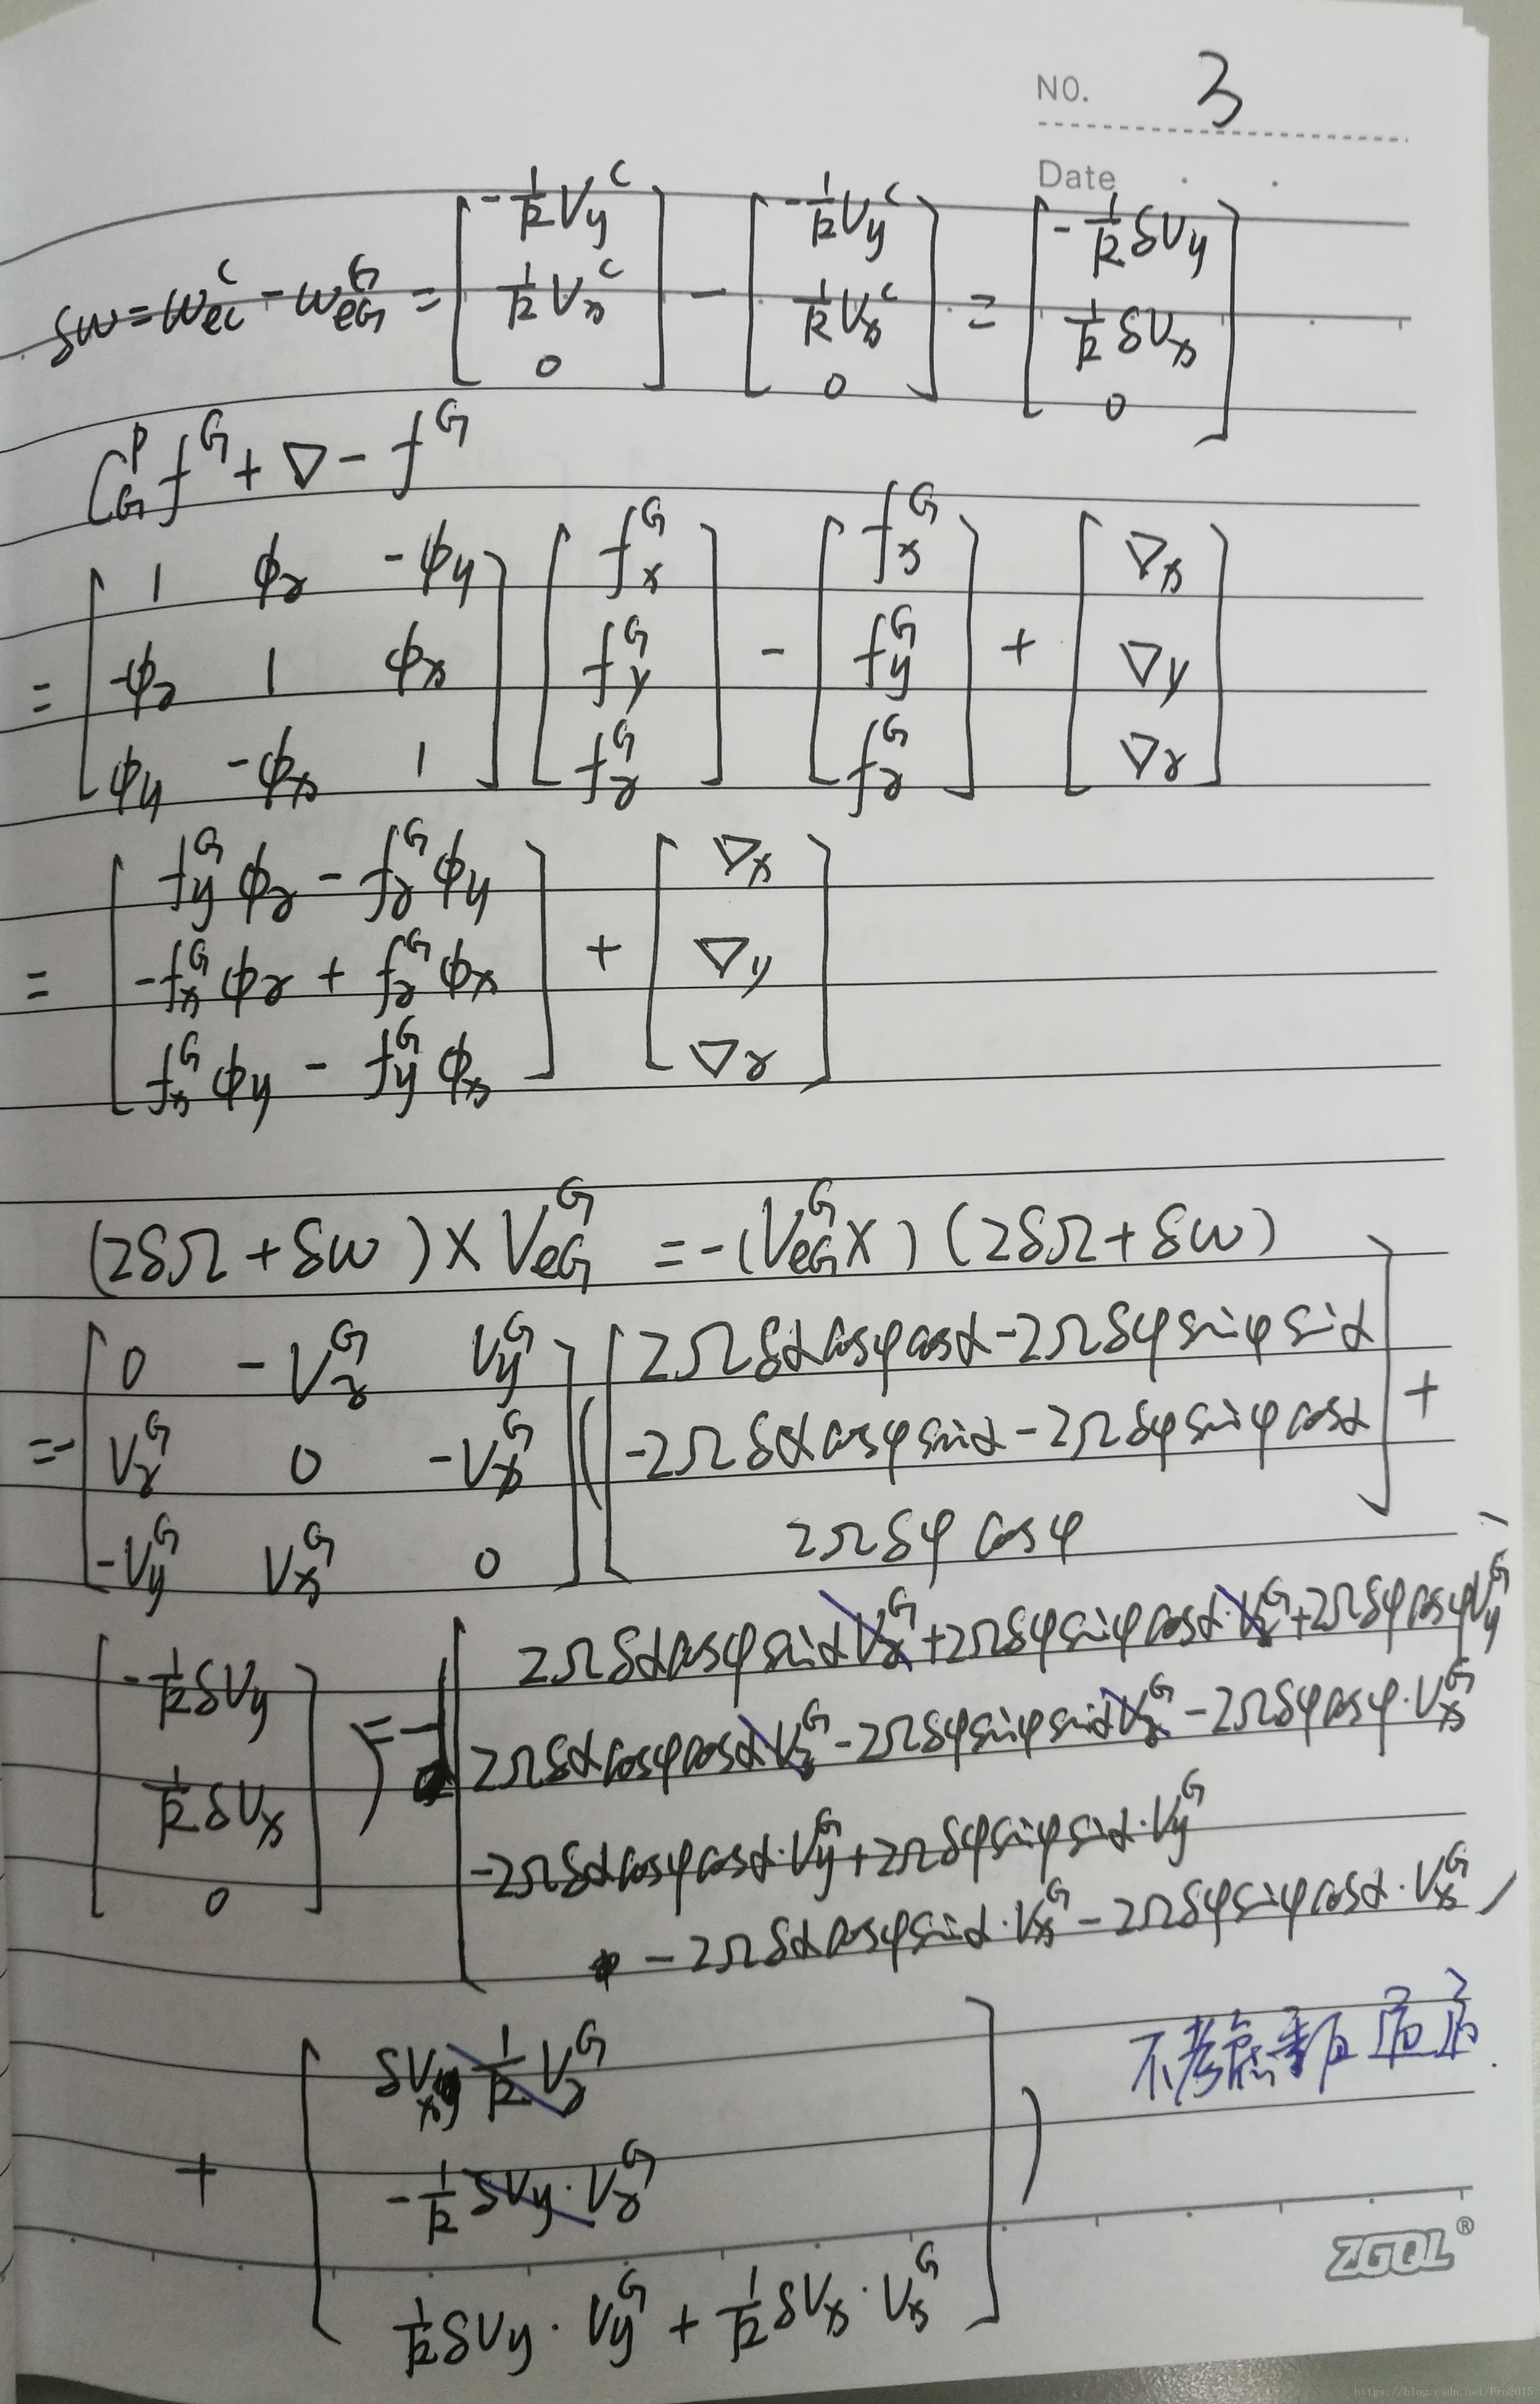 NO. 3
Date
δw = w_{ec}^{c} - w_{eG}^{G} = [ -1/R V_y^c ; 1/R V_x^c ; 0 ] - [ -1/R V_y^c ; 1/R V_x^c ; 0 ] = [ -1/R δV_y ; 1/R δV_x ; 0 ]
C_G^P f^G + ∇ - f^G
= [ 1 φ_z -φ_y ; -φ_z 1 φ_x ; φ_y -φ_x 1 ] [ f_x^G ; f_y^G ; f_z^G ] - [ f_x^G ; f_y^G ; f_z^G ] + [ ∇_x ; ∇_y ; ∇_z ]
= [ f_y^G φ_z - f_z^G φ_y ; -f_x^G φ_z + f_z^G φ_x ; f_x^G φ_y - f_y^G φ_x ] + [ ∇_x ; ∇_y ; ∇_z ]
(2δΩ + δw) × V_{eG}^G = -(V_{eG}^G ×) (2δΩ + δw)
= -[ 0 -V_z^G V_y^G ; V_z^G 0 -V_x^G ; -V_y^G V_x^G 0 ] ( [ 2Ωδα cosφ cosα - 2Ωδφ sinφ sinα ; -2Ωδα cosφ sinα - 2Ωδφ sinφ cosα ; 2Ωδφ cosφ ] +
[ -1/R δV_y ; 1/R δV_x ; 0 ] ) = -( [ 2Ωδα cosφ sinα V_z^G + 2Ωδφ sinφ cosα · V_z^G + 2Ωδφ cosφ V_y^G ; 2Ωδα cosφ cosα · V_z^G - 2Ωδφ sinφ sinα V_z^G - 2Ωδφ cosφ · V_x^G ; -2Ωδα cosφ cosα · V_y^G + 2Ωδφ sinφ sinα · V_y^G - 2Ωδα cosφ sinα · V_x^G - 2Ωδφ sinφ cosα · V_x^G ]
+ [ δV_x 1/R V_z^G ; -1/R δV_y · V_z^G ; 1/R δV_y · V_y^G + 1/R δV_x · V_x^G ] )
不考虑垂直通道.
ZGQL®
https://blog.csdn.net/Pro2015